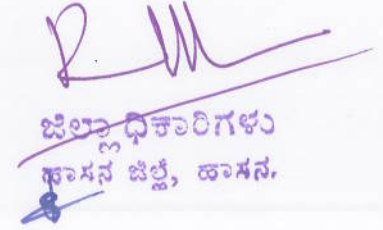 ಜಿಲ್ಲಾಧಿಕಾರಿಗಳು
ಹಾಸನ ಜಿಲ್ಲೆ, ಹಾಸನ.